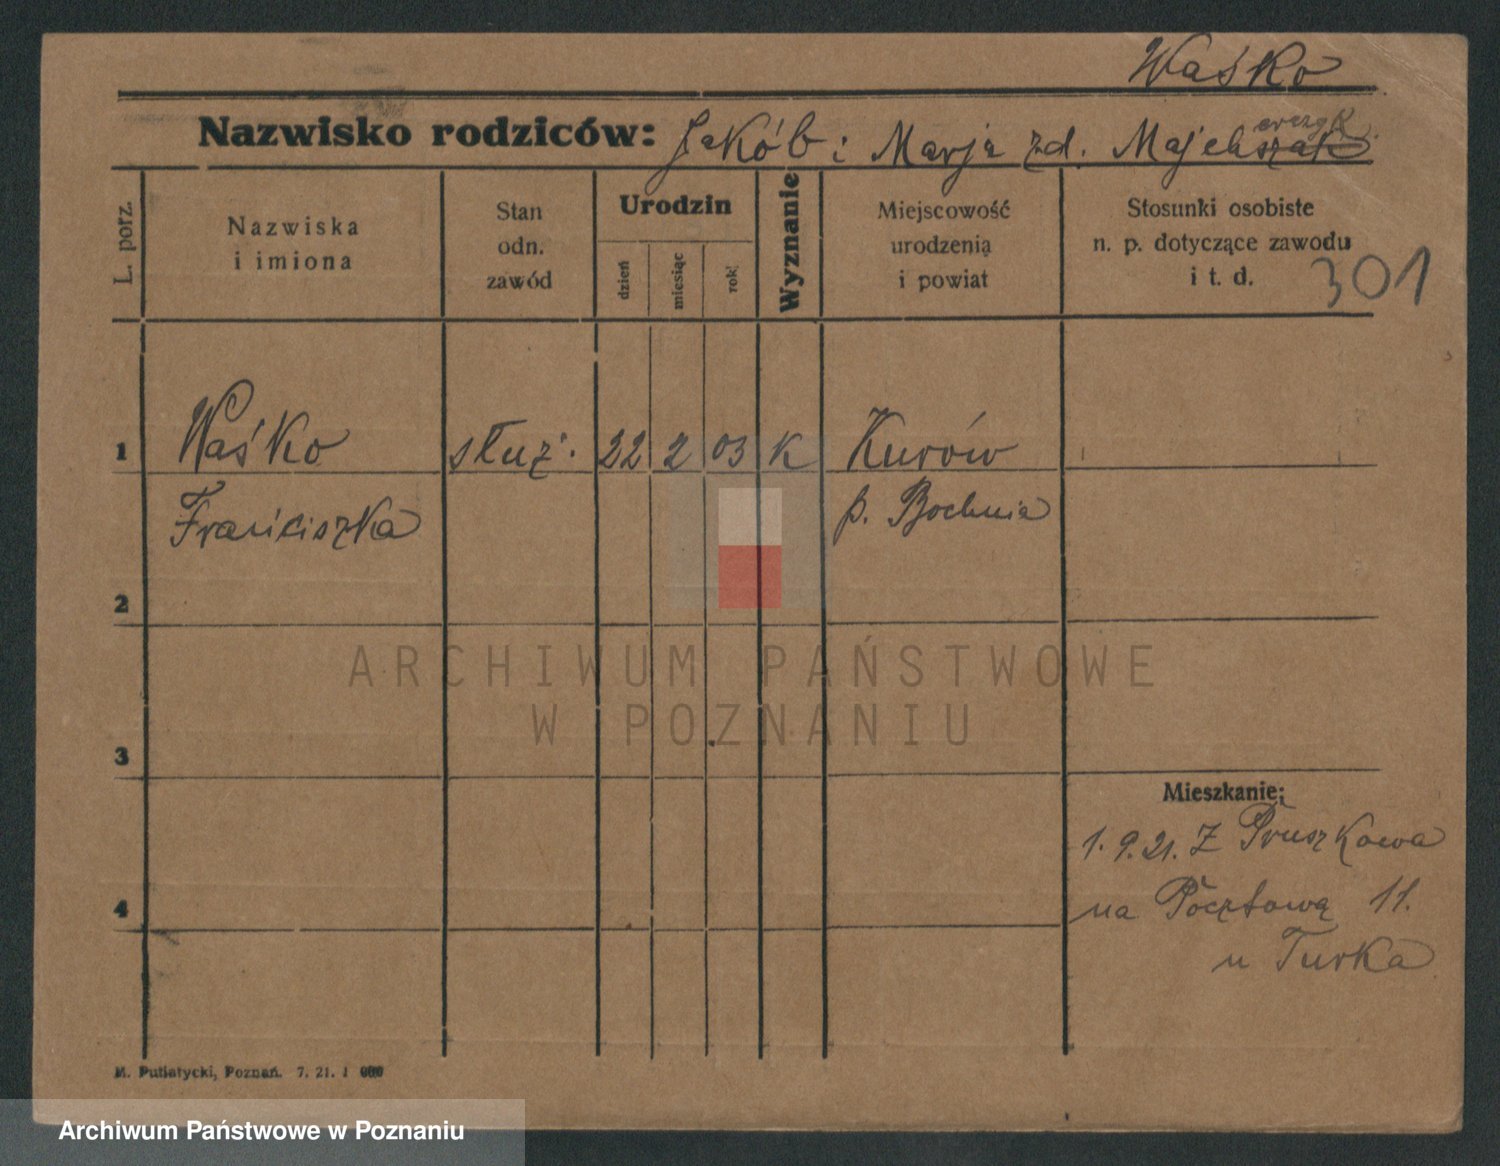 Waśko
Nazwisko rodziców: Jakób i Marja zd.
L. porz.
Nazwiska
i imiona
Stan
odn.
zawód
Urodzin
dzień
miesiąc
rok
Wyznanie
Miejscowość
urodzenia
i powiat
Stosunki osobiste
n. p. dotyczące zawodu
i t. d.
301
1 Waśko służ. 22 2 03 K Kurów
Franciszka p. Bochnia
2
3
4
Mieszkanie;
1. 9. 21. Z Pruszkowa
na Pocztową 11.
u Turka
M. Putiatycki, Poznań. 7. 21. 1 000
ARCHIWUM PAŃSTWOWE
W POZNANIU
Archiwum Państwowe w Poznaniu